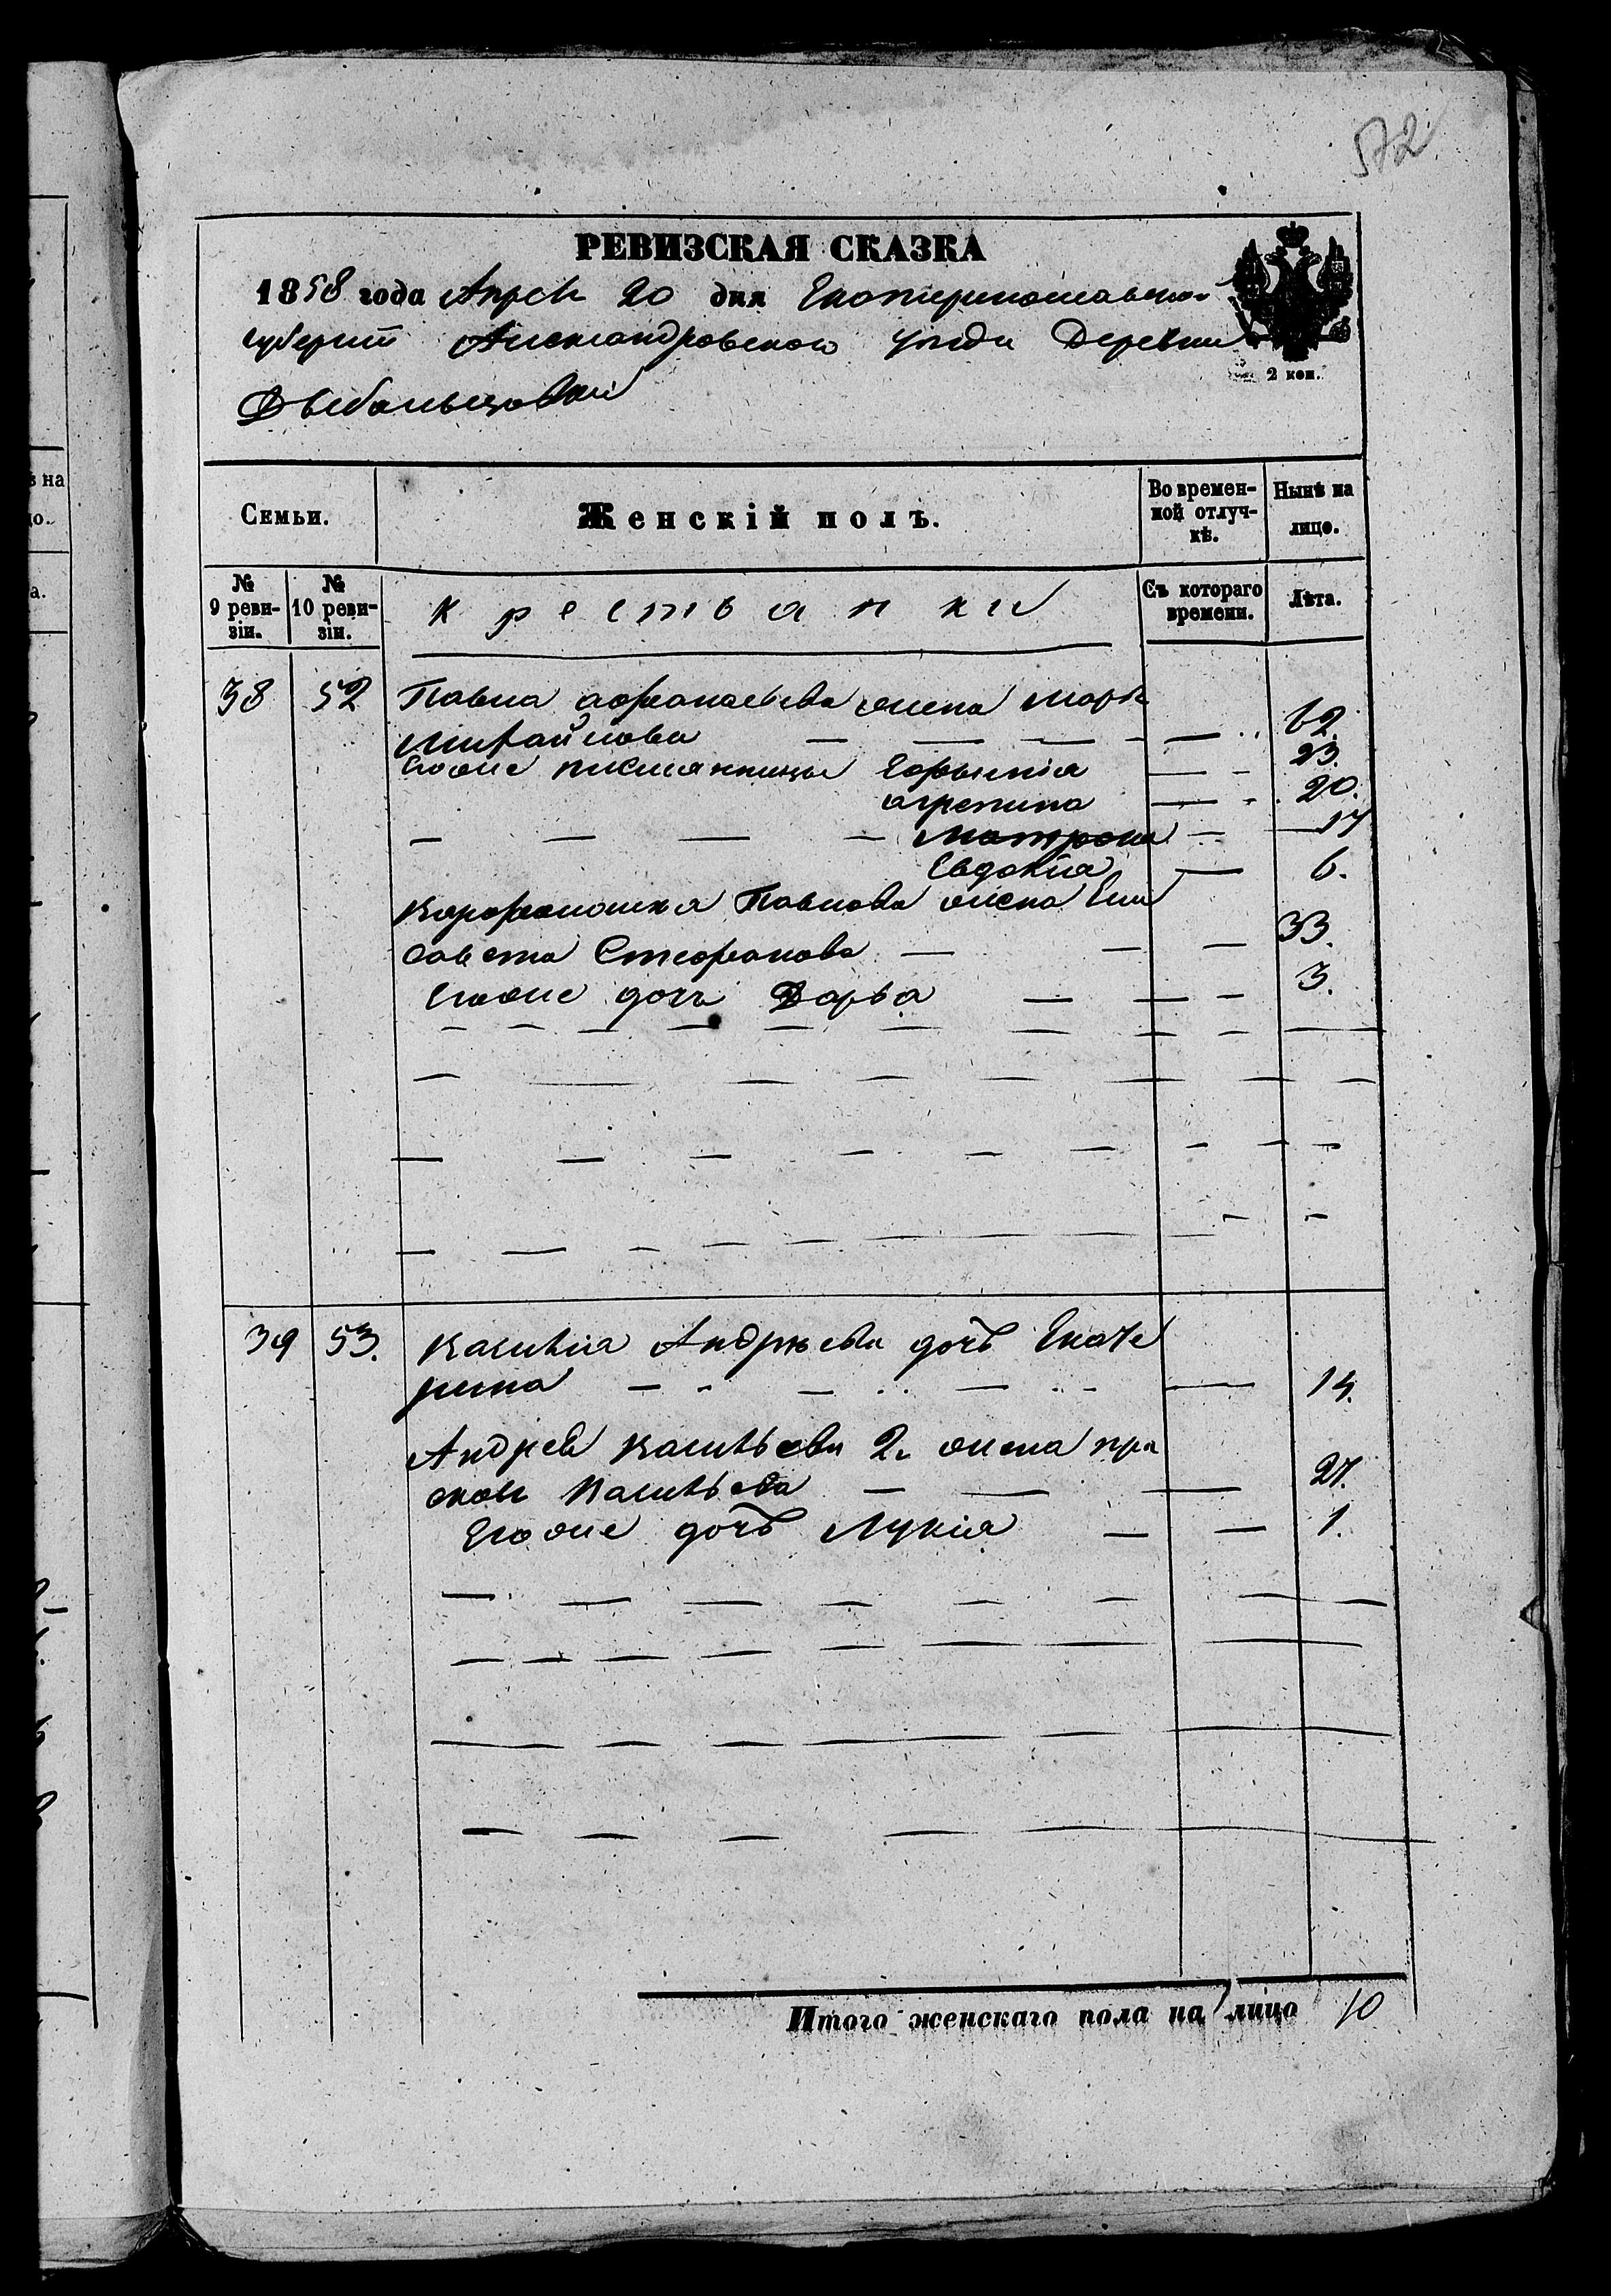 572
РЕВИЗСКАЯ СКАЗКА
1858 года Апреля 20 дня Екатеринославской
губернии Александровского уезда Деревни
2 коп.
Семьи. Женскій полъ. Во времен-ной отлуч-кѣ. Нынѣ на лицо.
№ 9 реви-зіи. № 10 реви-зіи. крестьанки Съ котораго времени. Лѣта.
38 52 Павла афанасьева жена Марья
Михайлова 62
Егоже племянницы Ефимія 23.
агрепина 20.
Матрона 17
Евдокіа 6.
Павлова жена Ели
савета Стефанова 33.
Егоже дочь Дарьа 3.
39 53. Андреева дочь Екате
рина 14.
Андрея 2я жена пра
сковья 27.
Егоже дочь Лукіа 1.
Итого женскаго пола на лицо 10
ѣ на
цо.
а.